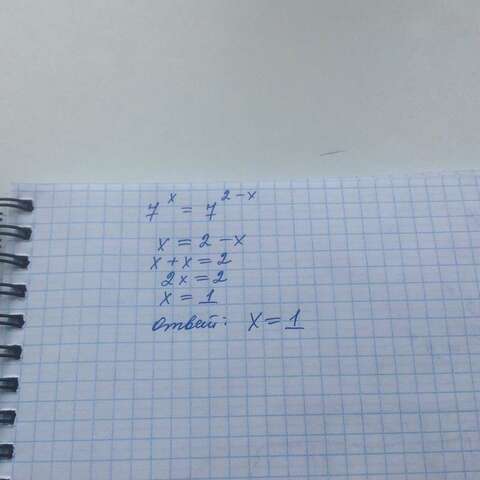 7^x = 7^{2-x}
x = 2 - x
x + x = 2
2x = 2
x = 1
ответ: x = 1